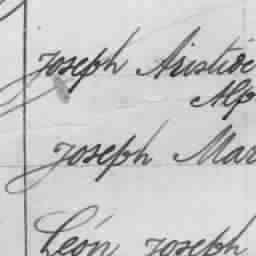 Joseph Aristide
Alp
Joseph Mar
Léon Joseph